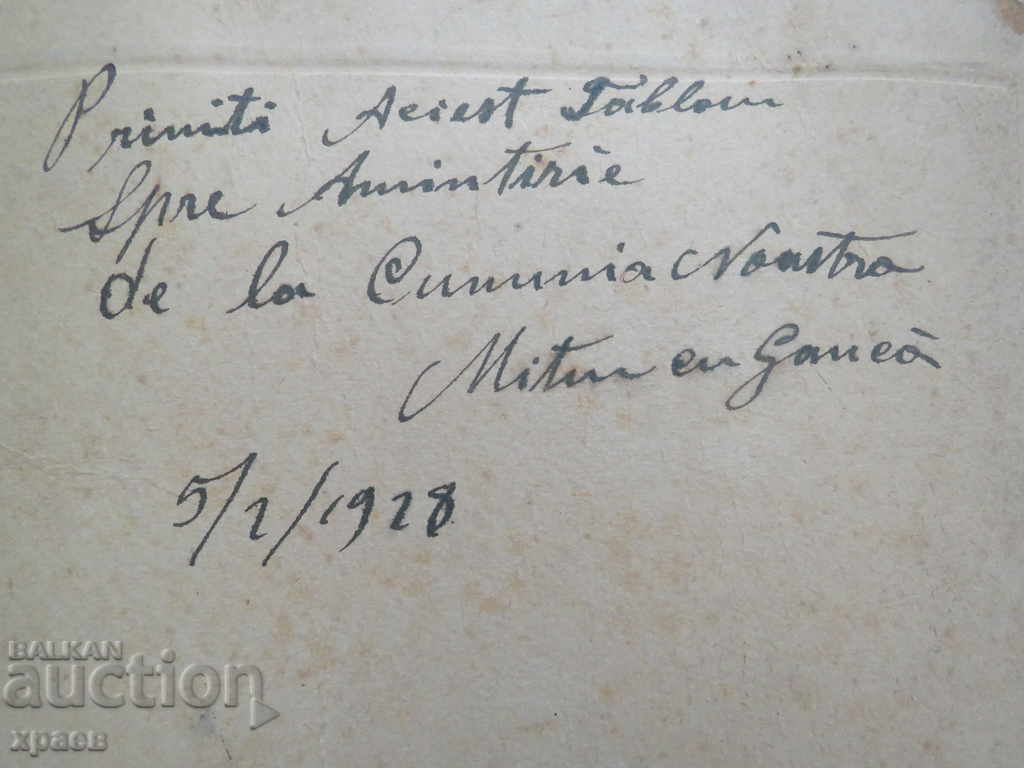 Primiti Aciest Tablou
Spre Amintirie
de la Cununia Noastra
Mitu cu Ganca
5/2/1928
BALKAN
auction
храев